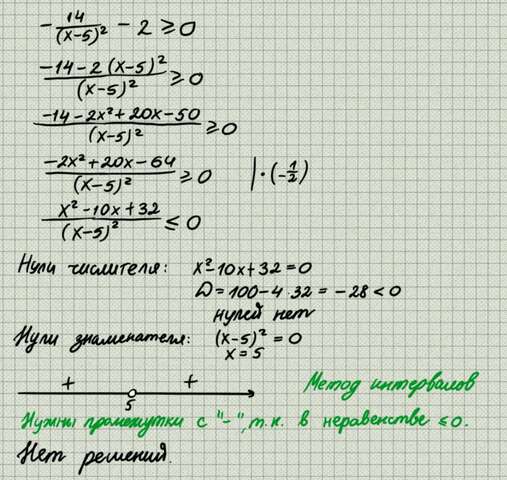 -14/(x-5)² - 2 ≥ 0
(-14-2(x-5)²)/(x-5)² ≥ 0
(-14-2x²+20x-50)/(x-5)² ≥ 0
(-2x²+20x-64)/(x-5)² ≥ 0 |·(-1/2)
(x²-10x+32)/(x-5)² ≤ 0
Нули числителя: x²-10x+32=0
D=100-4·32=-28<0
нулей нет
Нули знаменателя: (x-5)²=0
x=5
+ +
5
Метод интервалов
Нужны промежутки с "-", т.к. в неравенстве ≤0.
Нет решений.